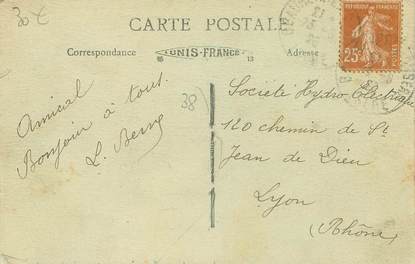 30 €
CARTE POSTALE
Correspondance
UNIS-FRANCE
Adresse
RÉPUBLIQUE FRANÇAISE
25c
POSTES
38)
Amical
Bonjour à tous.
L.
Société Hydro Electrique
120 chemin de St
Jean de Dieu
Lyon
(Rhône)